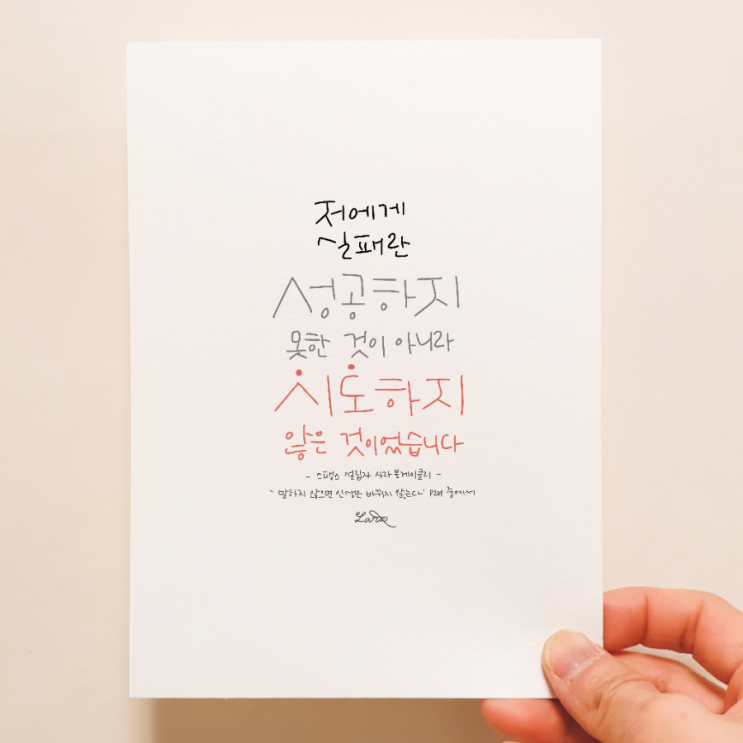 저에게
실패란
성공하지
못한 것이 아니라
시도하지
않은 것이었습니다
- 스팽스 설립자 사라 블레이클리 -
'말하지 않으면 인생은 바뀌지 않는다' 중에서